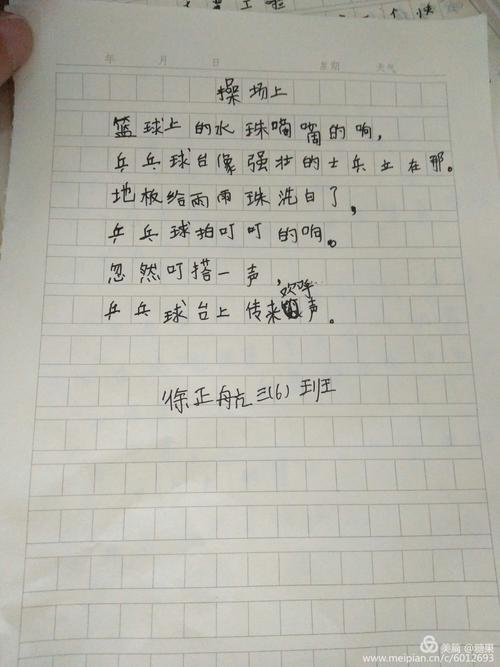 年 月 日 星期 天气
操场上
篮球上的水珠嘀嘀的响,
乒乓球台像强壮的士兵立在那。
地板给雨雨珠洗白了,
乒乓球拍叮叮的响。
忽然叮搭一声,
乒乓球台上传来欢呼声。
徐正航三(6)班
美篇@糖果
www.meipian.cn/c/6012693